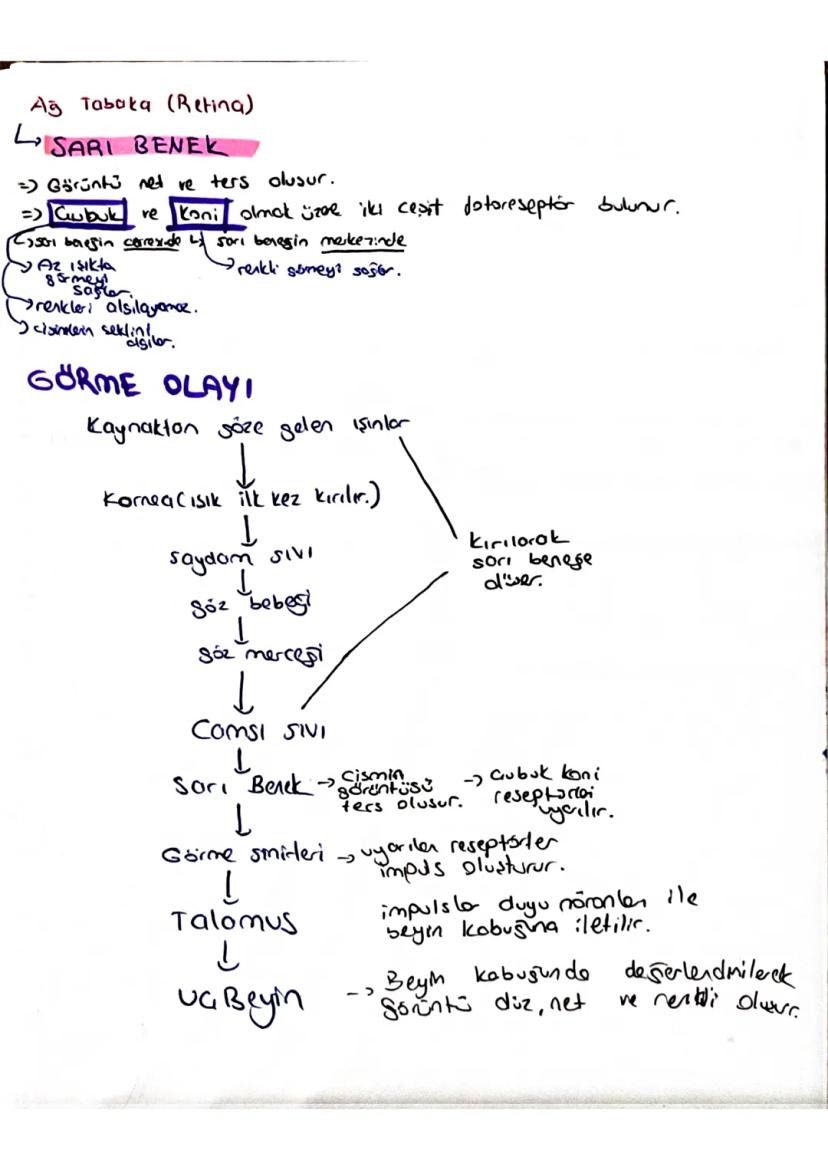 Ağ Tabaka (Retina)
↳ SARI BENEK
=> Görüntü net ve ters oluşur.
=> Çubuk ve Koni olmak üzere iki çeşit fotoreseptör bulunur.
↳ sarı beneğin çevresinde ↳ sarı beneğin merkezinde
→ Az ışıkta görmeyi sağlar.
→ renkli görmeyi sağlar.
→ renkleri algılayamaz.
→ cisimlerin şeklini algılar.
GÖRME OLAYI
Kaynaktan göze gelen ışınlar
Kornea (ışık ilk kez kırılır.)
Saydam sıvı
göz bebeği
göz merceği
Camsı sıvı
Kırılarak
sarı beneğe
düşer.
Sarı Benek → Cismin görüntüsü ters oluşur. → Çubuk koni reseptörleri uyarılır.
Görme sinirleri → uyarılan reseptörler
impuls oluşturur.
Talamus
impulslar duyu nöronları ile
beyin kabuğuna iletilir.
Uç Beyin → Beyin kabuğunda değerlendirilerek
görüntü düz, net ve renkli oluşur.